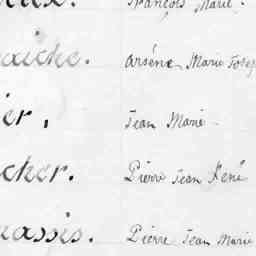 François Marie.
aiche. Arsène Marie Josep
er, Jean Marie
cher. Pierre Jean René
uassis. Pierre Jean Marie